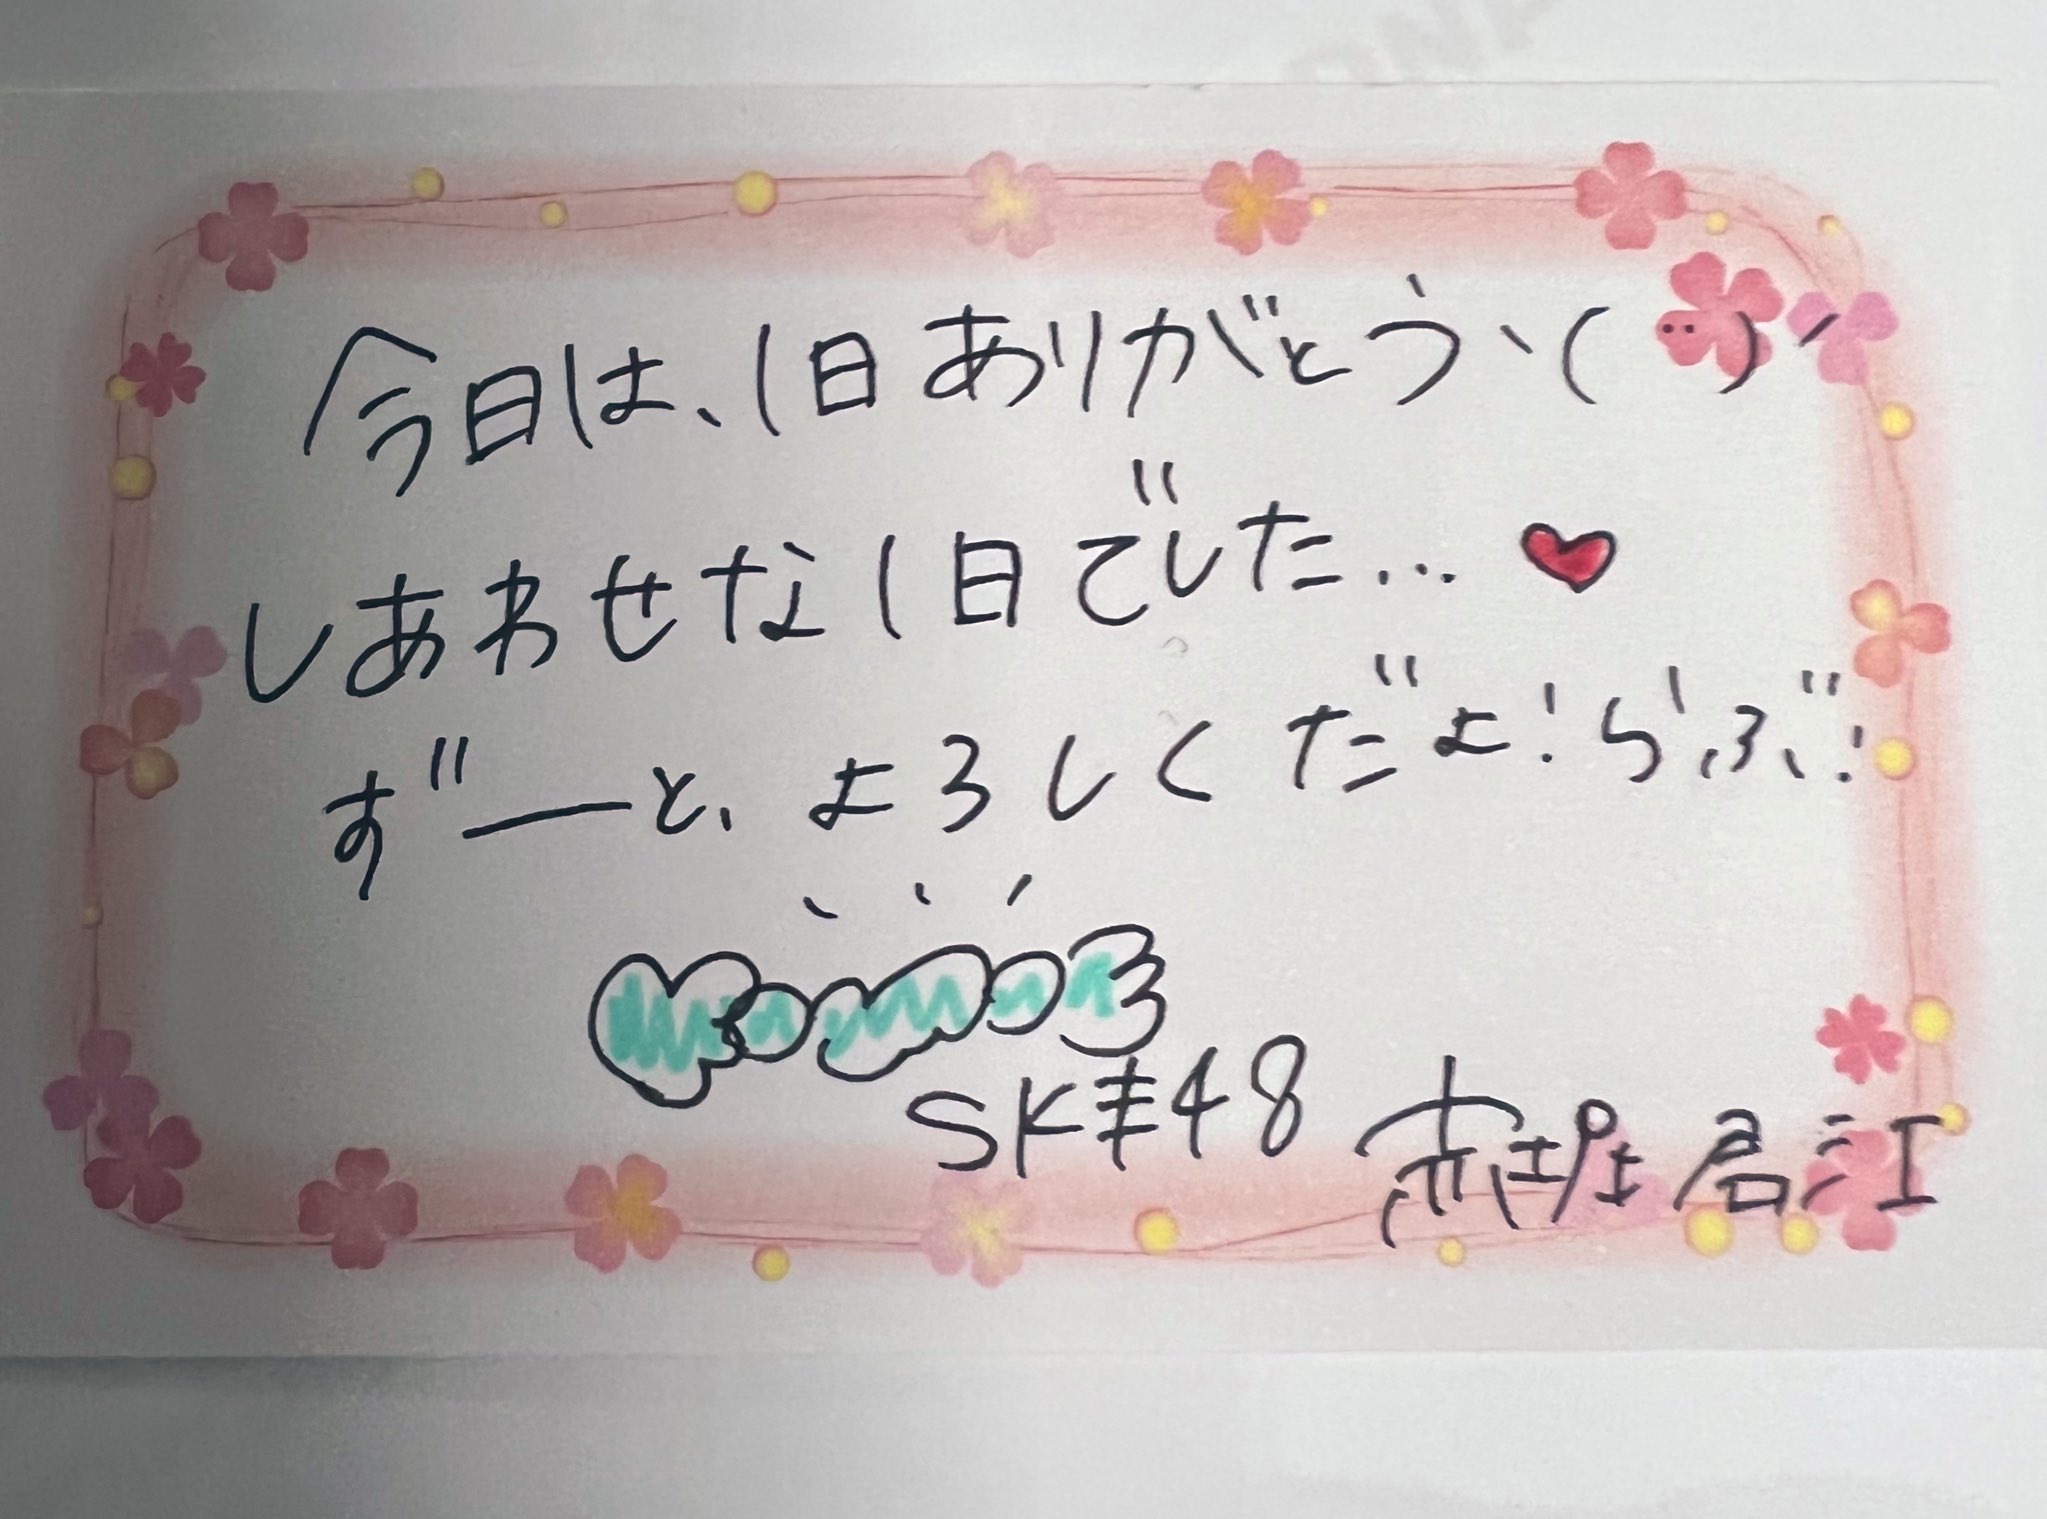 今日は、1日ありがとう ヽ( ¨ )ノ
しあわせな1日でした…♥
ずーと、よろしくだよ!らぶ!
SKE48